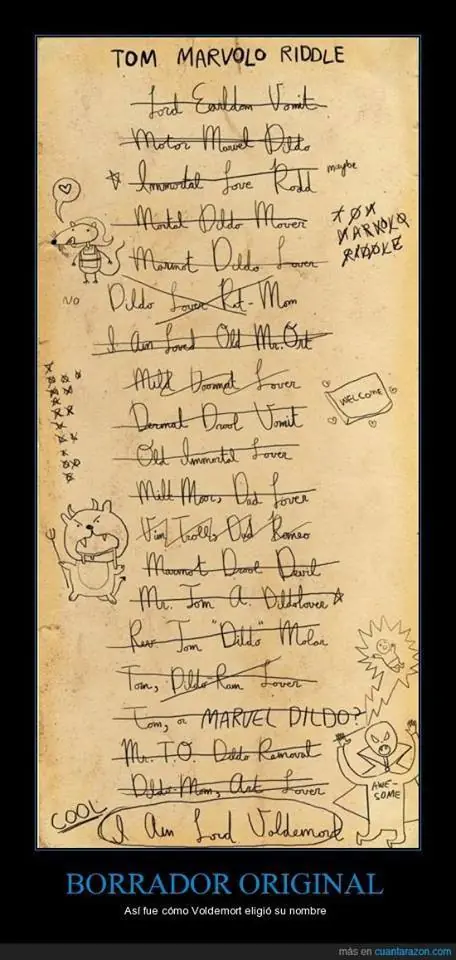 TOM MARVOLO RIDDLE
Lord Earldom Vomit
Motor Marvel Dildo
Immortal Love Rodd
maybe
Mortal Dildo Mover
TOM
MARVOLO
RIDDLE
Marmot Dildo Lover
NO
Dildo Lover Rot-Mom
I Am Loved Old Mr. Ort
Mild Doormat Lover
WELCOME
Dermal Drool Vomit
Old Immortal Lover
Milt Moor, Dad Lover
Vim Trolls, Dad Romeo
Marmot Drool Devil
Mr. Tom A. Dildolover
Rev. Tom "Dildo" Molar
Tom, Dildo Ram Lover
Tom, or MARVEL DILDO?
Mr. T.O. Dildo Removal
Dildo Mom, Art Lover
AWE-
SOME
COOL
I Am Lord Voldemort
BORRADOR ORIGINAL
Así fue cómo Voldemort eligió su nombre
más en cuantarazon.com